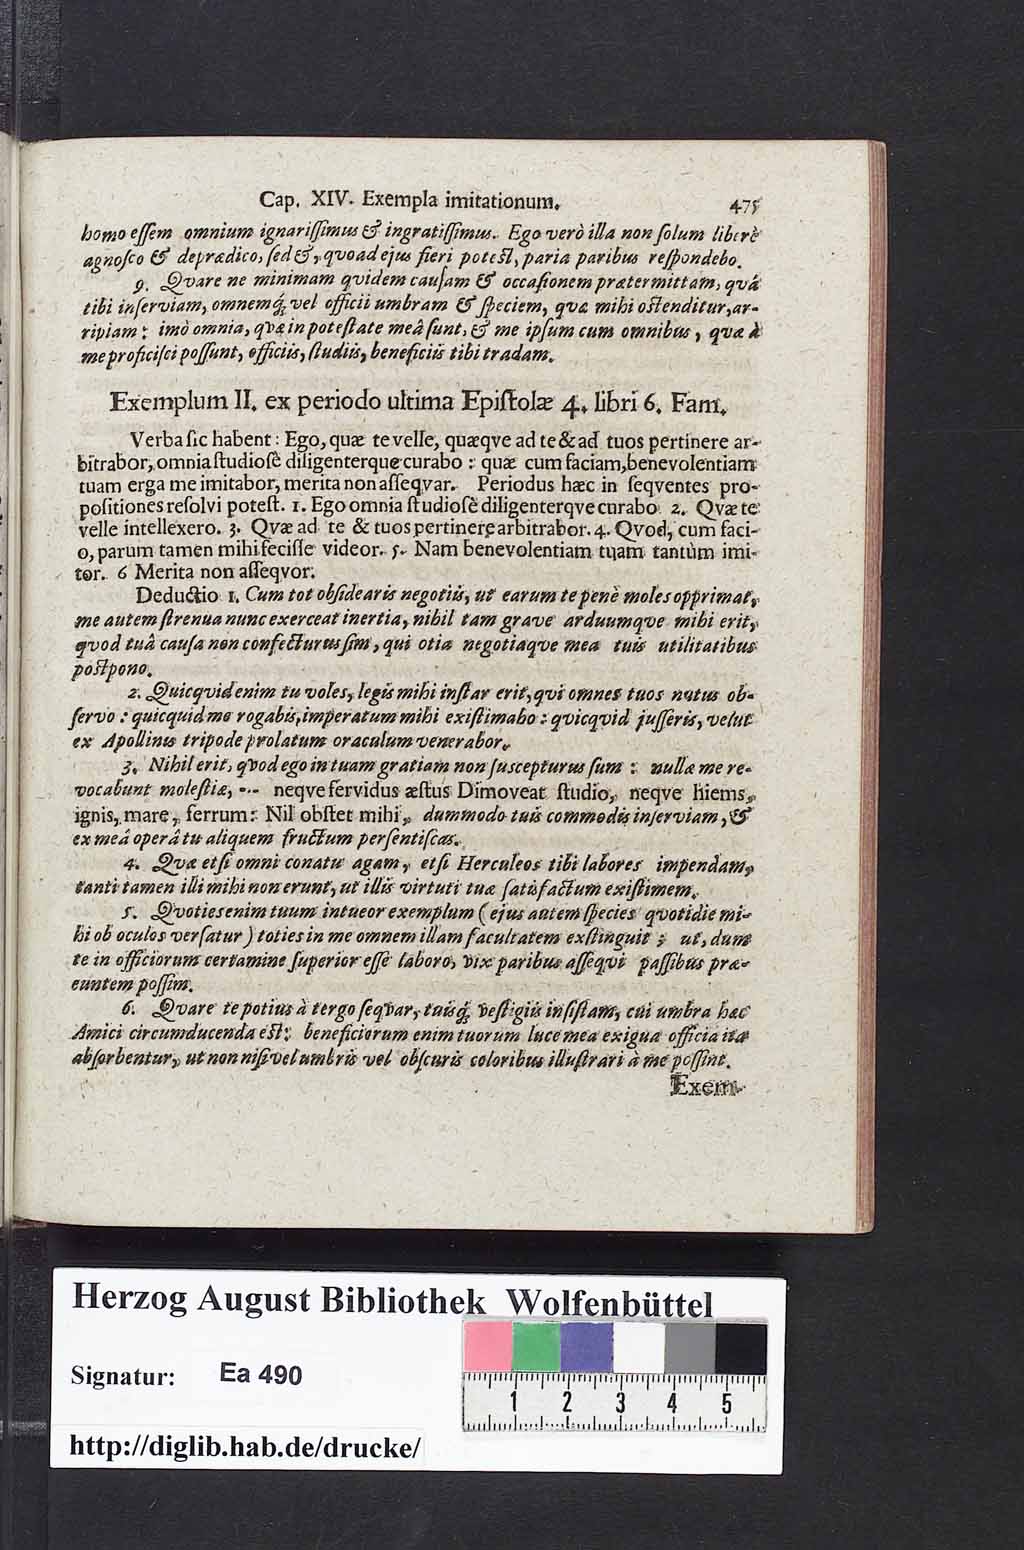 Cap. XIV. Exempla imitationum. 475
homo eſſem omnium ignariſſimus & ingratiſſimus. Ego verò illa non ſolum liberè
agnoſco & deprædico, ſed &, quoad ejus fieri poteſt, paria paribus reſpondebo.
9. Qvare ne minimam qvidem cauſam & occaſionem prætermittam, quâ
tibi inſerviam, omnemq́; vel officii umbram & ſpeciem, quæ mihi oſtenditur, ar-
ripiam: imò omnia, qvæ in poteſtate meâ ſunt, & me ipſum cum omnibus, quæ à
me proficiſci poſſunt, officiis, ſtudiis, beneficiis tibi tradam.
Exemplum II. ex periodo ultima Epiſtolæ 4. libri 6. Fam.
Verba ſic habent: Ego, quæ te velle, quæqve ad te & ad tuos pertinere ar-
bitrabor, omnia ſtudioſè diligenterque curabo: quæ cum faciam, benevolentiam
tuam erga me imitabor, merita non aſſeqvar. Periodus hæc in ſeqventes pro-
poſitiones reſolvi poteſt. 1. Ego omnia ſtudioſè diligenterqve curabo. 2. Qvæ te
velle intellexero. 3. Qvæ ad te & tuos pertinere arbitrabor. 4. Qvod, cum faci-
o, parum tamen mihi feciſſe videor. 5. Nam benevolentiam tuam tantùm imi-
tor. 6 Merita non aſſeqvor.
Deductio 1. Cum tot obſidearis negotiis, ut earum te penè moles opprimat,
me autem ſtrenua nunc exerceat inertia, nihil tam grave arduumqve mihi erit,
qvod tuâ cauſa non confecturus ſim, qui otia negotiaqve mea tuis utilitatibus
poſtpono.
2. Quicqvid enim tu voles, legis mihi inſtar erit, qui omnes tuos nutus ob-
ſervo: quicquid me rogabis, imperatum mihi exiſtimabo: qvicqvid juſſeris, velut
ex Apollinis tripode prolatum oraculum venerabor.
3. Nihil erit, qvod ego in tuam gratiam non ſuscepturus ſum: nullæ me re-
vocabunt moleſtiæ, --- neqve fervidus æſtus Dimoveat ſtudio, neqve hiems,
ignis, mare, ferrum: Nil obſtet mihi, dummodo tuis commodis inſerviam, &
ex meâ operâ tu aliquem fructum perſentiſcas.
4. Qvæ etſi omni conatu agam, etſi Herculeos tibi labores impendam,
tanti tamen illi mihi non erunt, ut illis virtuti tuæ ſatisfactum exiſtimem.
5. Qvoties enim tuum intueor exemplum (ejus autem ſpecies qvotidie mi-
hi ob oculos verſatur) toties in me omnem illam facultatem exſtinguit; ut, dum
te in officiorum certamine ſuperior eſſe laboro, vix paribus aſſeqvi paſſibus præ-
euntem poſſim.
6. Qvare te potius à tergo ſeqvar, tuisq́; veſtigiis inſiſtam, cui umbra hæc
Amici circumducenda eſt: beneficiorum enim tuorum luce mea exigua officia ita
abſorbentur, ut non niſi vel umbris vel obſcuris coloribus illuſtrari à me poſſint.
Exem-
Herzog August Bibliothek Wolfenbüttel
Signatur: Ea 490
1 2 3 4 5
http://diglib.hab.de/drucke/